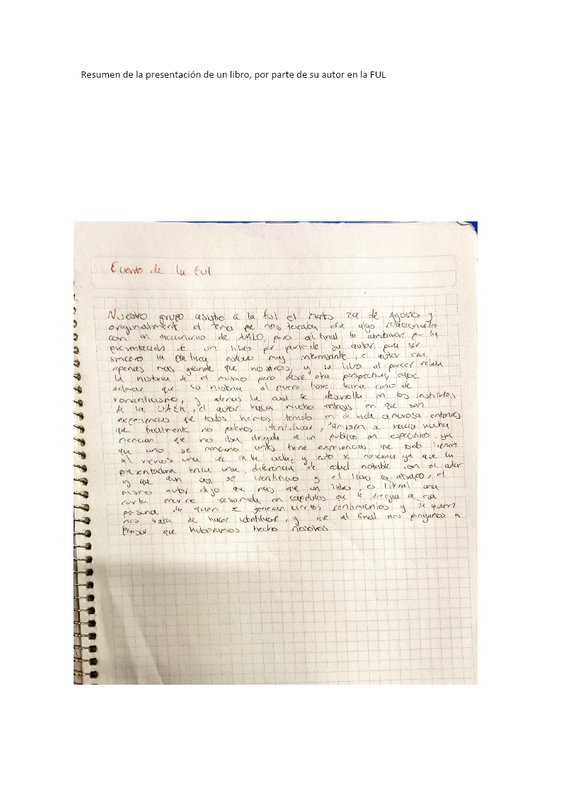 Resumen de la presentación de un libro, por parte de su autor en la FUL
Evento de la FUL
Nuestro grupo asistio a la ful el martes 29 de Agosto y
originalment el tema que nos tocaba era algo relacionado
con un mecanismo de AMLO, pero al final lo cambiaron por la
presentación de un libro por parte de su autor, para ser
sincero la platica estuvo muy interesante, el autor era
apenas mas grande que nosotros, y su libro al parecer relata
la historia de el mismo pero desde otra perspectiva, cabe
aclarar que su historia al parecer tiene trama como de
romanticismo, y ademas la cual se desarrolla en los institutos
de la UAEH, el autor hacia mucho enfasis en que son
experiencias que todos hemos tenido en la vida amorosa entonces
que facilmente nos podemos identificar, tambien se hacia mucha
mencion que no iba dirigida a un publico en especifico, ya
que uno de menciono antes tiene experiencias que todos tienen
al menos una en la vida, y esto se menciona ya que la
presentadora tenia una diferencia de edad notable con el autor
y que aun asi se identifico y el libro la atrapo, el
mismo autor dijo que mas que un libro, es literal una
carta enorme separada en capitulos que le dirigia a esa
persona de quien se generan ciertos sentimientos y de quien
nos trata de hacer identificar, y que al final nos pongamos a
pensar que hubieramos hecho nosotros